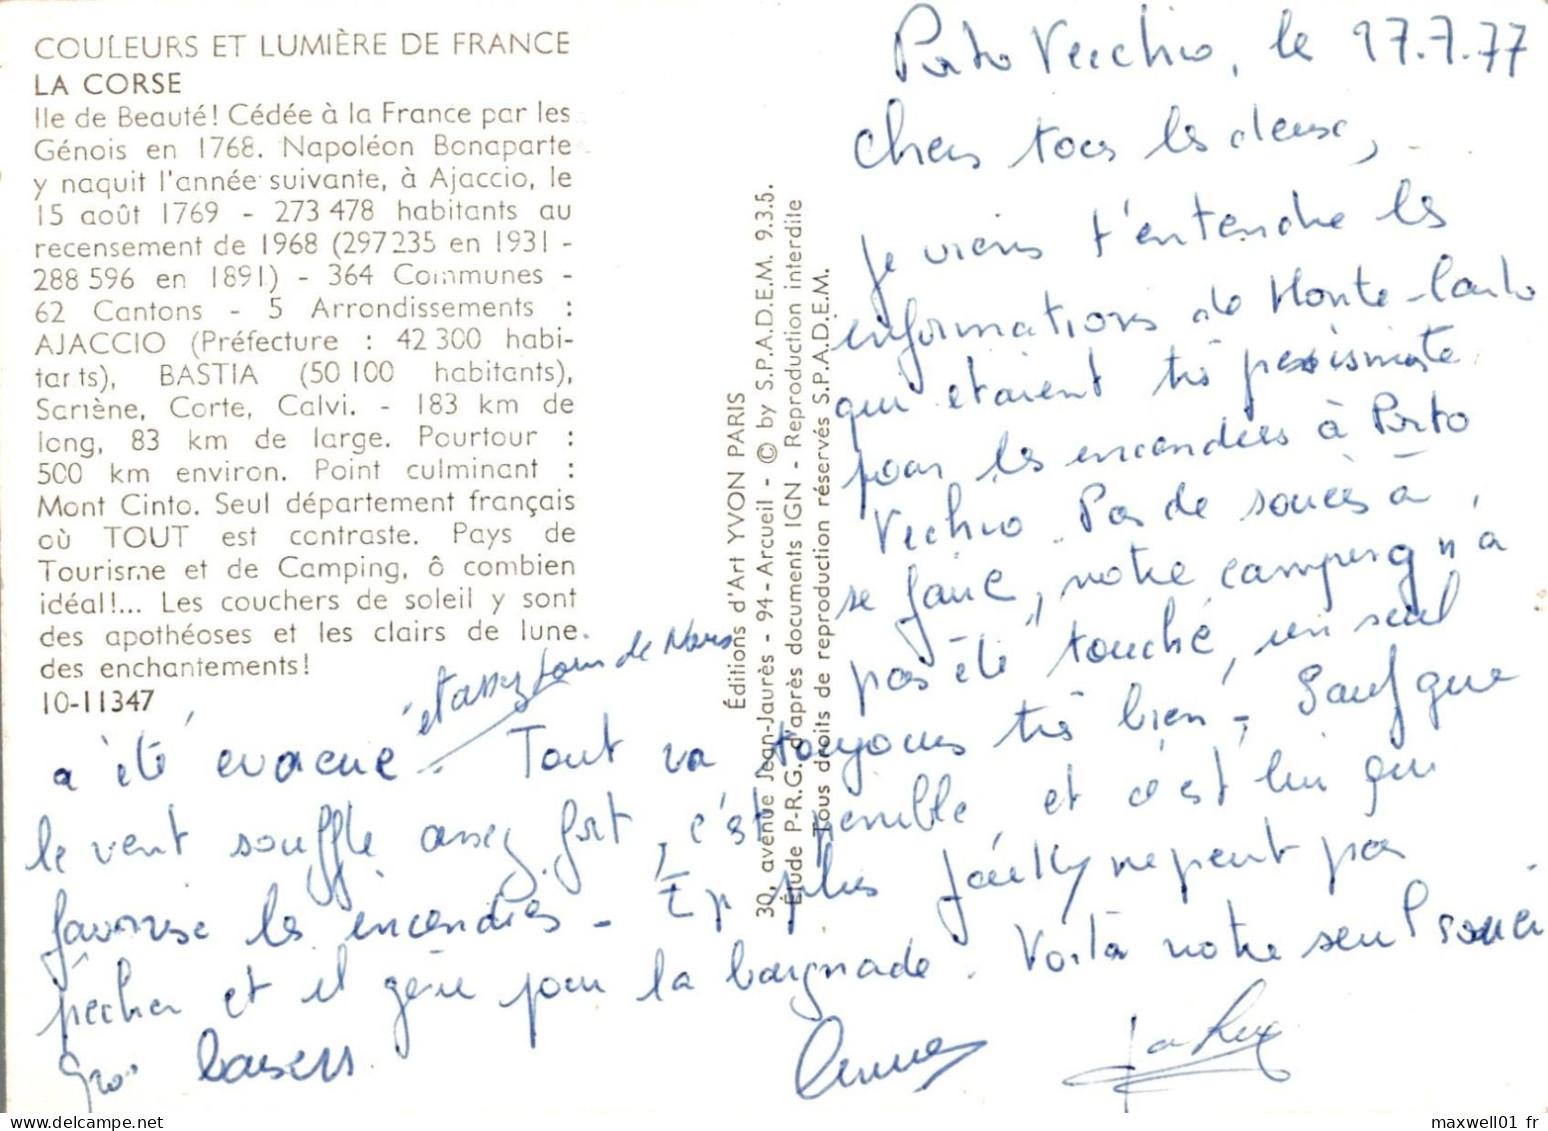 COULEURS ET LUMIÈRE DE FRANCE
LA CORSE
Ile de Beauté! Cédée à la France par les
Génois en 1768. Napoléon Bonaparte
y naquit l'année suivante, à Ajaccio, le
15 août 1769 - 273 478 habitants au
recensement de 1968 (297 235 en 1931 -
288 596 en 1891) - 364 Communes -
62 Cantons - 5 Arrondissements :
AJACCIO (Préfecture : 42 300 habi-
tants), BASTIA (50 100 habitants),
Sartène, Corte, Calvi. - 183 km de
long, 83 km de large. Pourtour :
500 km environ. Point culminant :
Mont Cinto. Seul département français
où TOUT est contraste. Pays de
Tourisme et de Camping, ô combien
idéal!... Les couchers de soleil y sont
des apothéoses et les clairs de lune
des enchantements!
10-11347
Éditions d'Art YVON PARIS
30, avenue Jean-Jaurès - 94 - Arcueil - © by S.P.A.D.E.M. 9.3.5.
Étude P.-R.G. d'après documents IGN - Reproduction interdite
Tous droits de reproduction réservés S.P.A.D.E.M.
Porto Vecchio, le 27.7.77
Chers tous les deux,
Je viens d'entendre les
informations de Monte-Carlo
qui étaient très pessimiste
pour les incendies à Porto
Vechio. Pas de soucis à
se faire, notre camping n'a
pas été touché, un seul
a été évacué et assez loin de Nous. Tout va toujours très bien. Sauf que
le vent souffle assez fort, c'est pénible, et c'est lui qui
favorise les incendies - En plus Jacky ne peut pas
pêcher et il gêne pour la baignade. Voilà notre seul souci
Gros baisers
maxwell01 fr